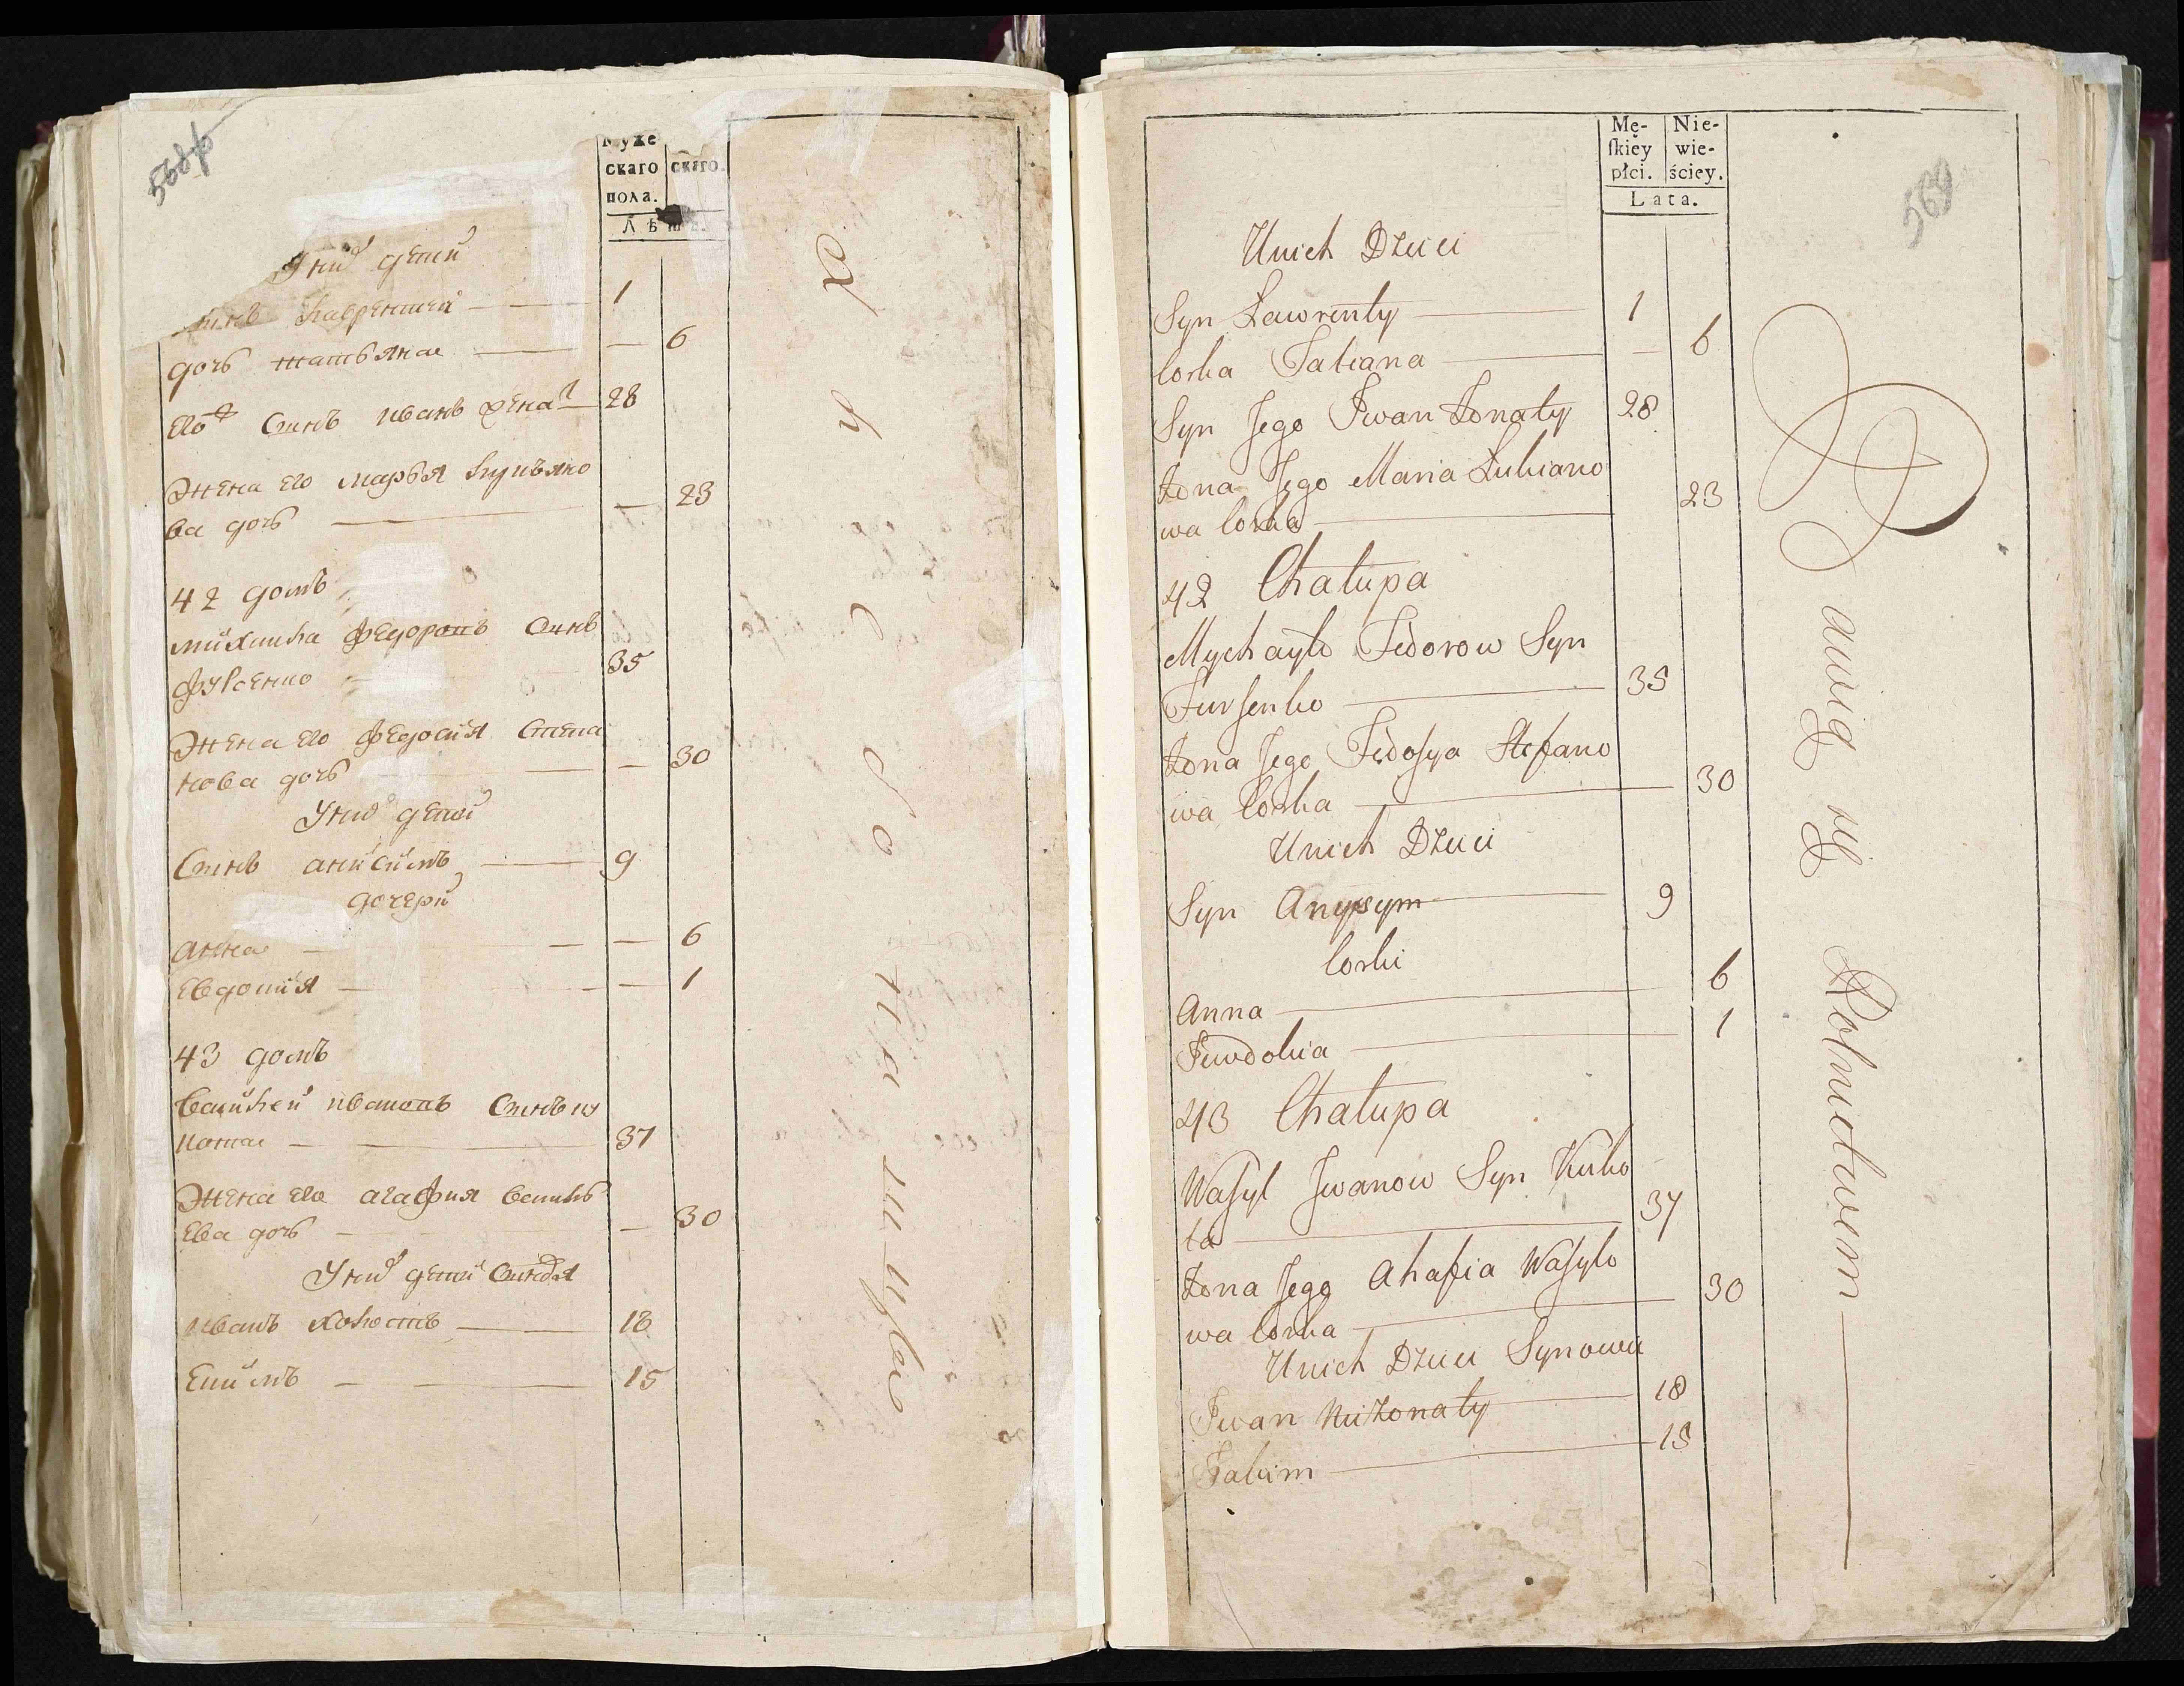 Муже
скаго скаго.
пола.
Лѣта.
У нихъ детей
сынъ Лаврентей — 1
дочь татьяна — 6
его сынъ иванъ женат — 28
Жена его марья лукъяно
ва дочь — 23
42 домъ
михаила федоровъ сынъ
фурсенко 35
Жена его федосия степа
нова дочь — 30
У нихъ детей
Сынъ анисимъ — 9
дочери
анна — 6
евдокия — 1
43 домъ
василей ивановъ сынъ ку
кота — 37
Жена его агафия василь
ева дочь — 30
У нихъ детей сыновья
иванъ холостъ — 18
екимъ — 15
569
Mę- Nie-
ſkiey wie-
płci. ściey.
Lata.
Unich Dzieci
Syn Ławrenty — 1
Corka Tatiana — 6
Syn Jego Iwan żonaty 28
żona Jego Maria Łukiano
wa Corka — 23
42 Chałupa
Mychayło Fedorow Syn
Furſenko — 35
żona Jego Fedoſya Stefano
wa Corka — 30
Unich Dzieci
Syn Anysym — 9
Corki
Anna — 6
Jewdokia — 1
43 Chałupa
Waſyl Jwanow Syn Kuko
ta — 37
żona Jego Ahafia Waſylo
wa Corka — 30
Unich Dzieci Synowie
Iwan Nieżonaty — 18
Jakim — 15
Rolnictwem —